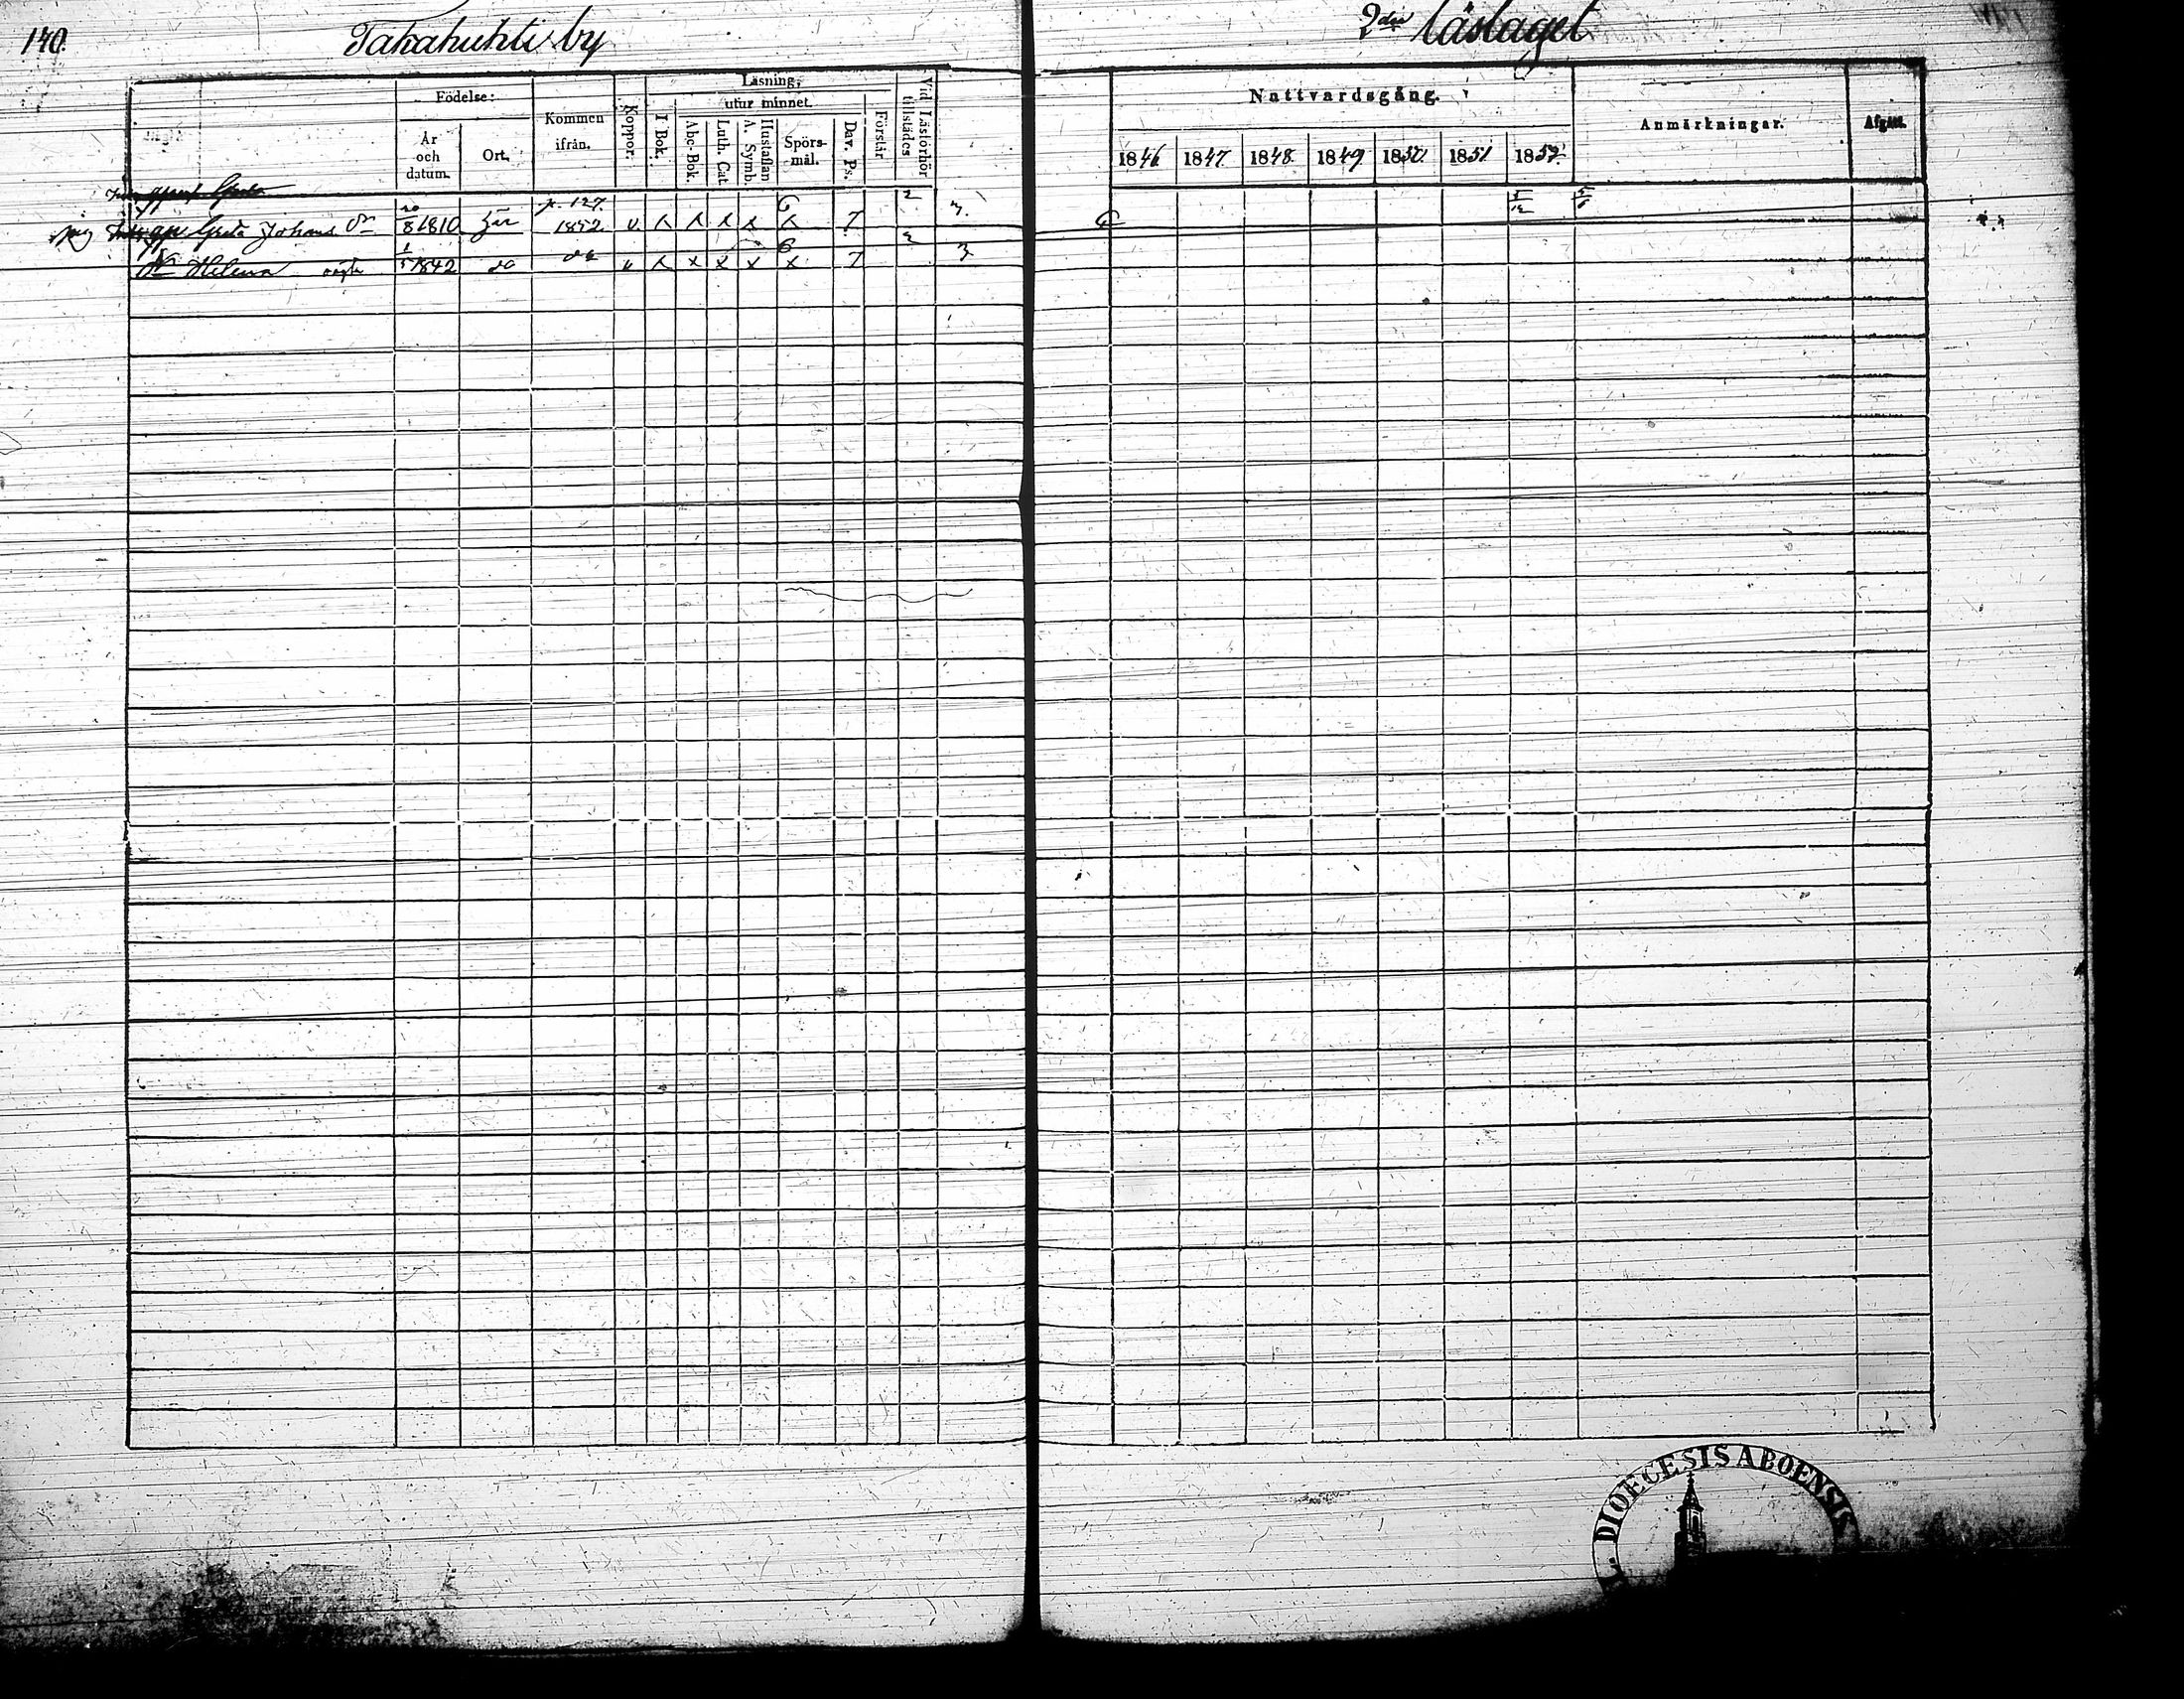 140. Takahuhti by 2dra läslaget
Födelse: År och datum. Ort. Kommen ifrån. Koppor. Läsning, utur minnet. I Bok. Abc-Bok. Luth. Cat. Hustaflan A. Symb. Spörsmål. Dav. Ps. Förstår Vid Läsförhör tillstädes Nattvardsgång. 1846 1847. 1848. 1849 1850. 1851 1852. Anmärkningar. Afgått.
Greta
Greta Johans Dr 20/8 1810 här p. 127. 1852 v. x x x x x 6 7 2 3. 5/12 5/6
Dr Helena oägta 1/5 1842 do do v x x x x x 6 7 2 3
DIOECESIS ABOENSIS